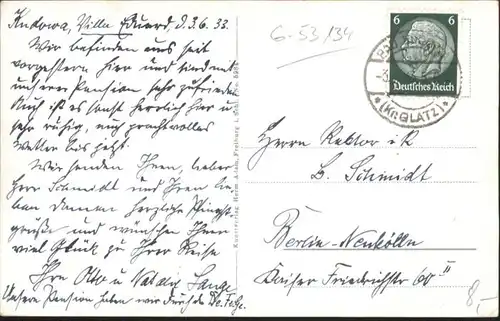 Kudowa, Villa Eduard, d. 3.6.33.
Wir befinden uns seit
vorgestern hier und sind mit
unserer Pension sehr zufrieden.
Auch ist es sonst herrlich hier u
sehr ruhig, auch prachtvolles
Wetter bis jetzt.
Wir senden Ihnen, lieber
Herr Schmidt und Ihren lie-
ben Damen herzliche Pfingst-
grüße und wünschen Ihnen
viel Glück zu Ihrer Reise
Ihre Otto u Lange
Unsere Pension haben wir durch die
6-53/34
6 6
Deutsches Reich
-3.
*(Kr. GLATZ)*
Herrn Rektor i R
B. Schmidt
Berlin-Neukölln
Kaiser Friedrichstr 60 II
8,-